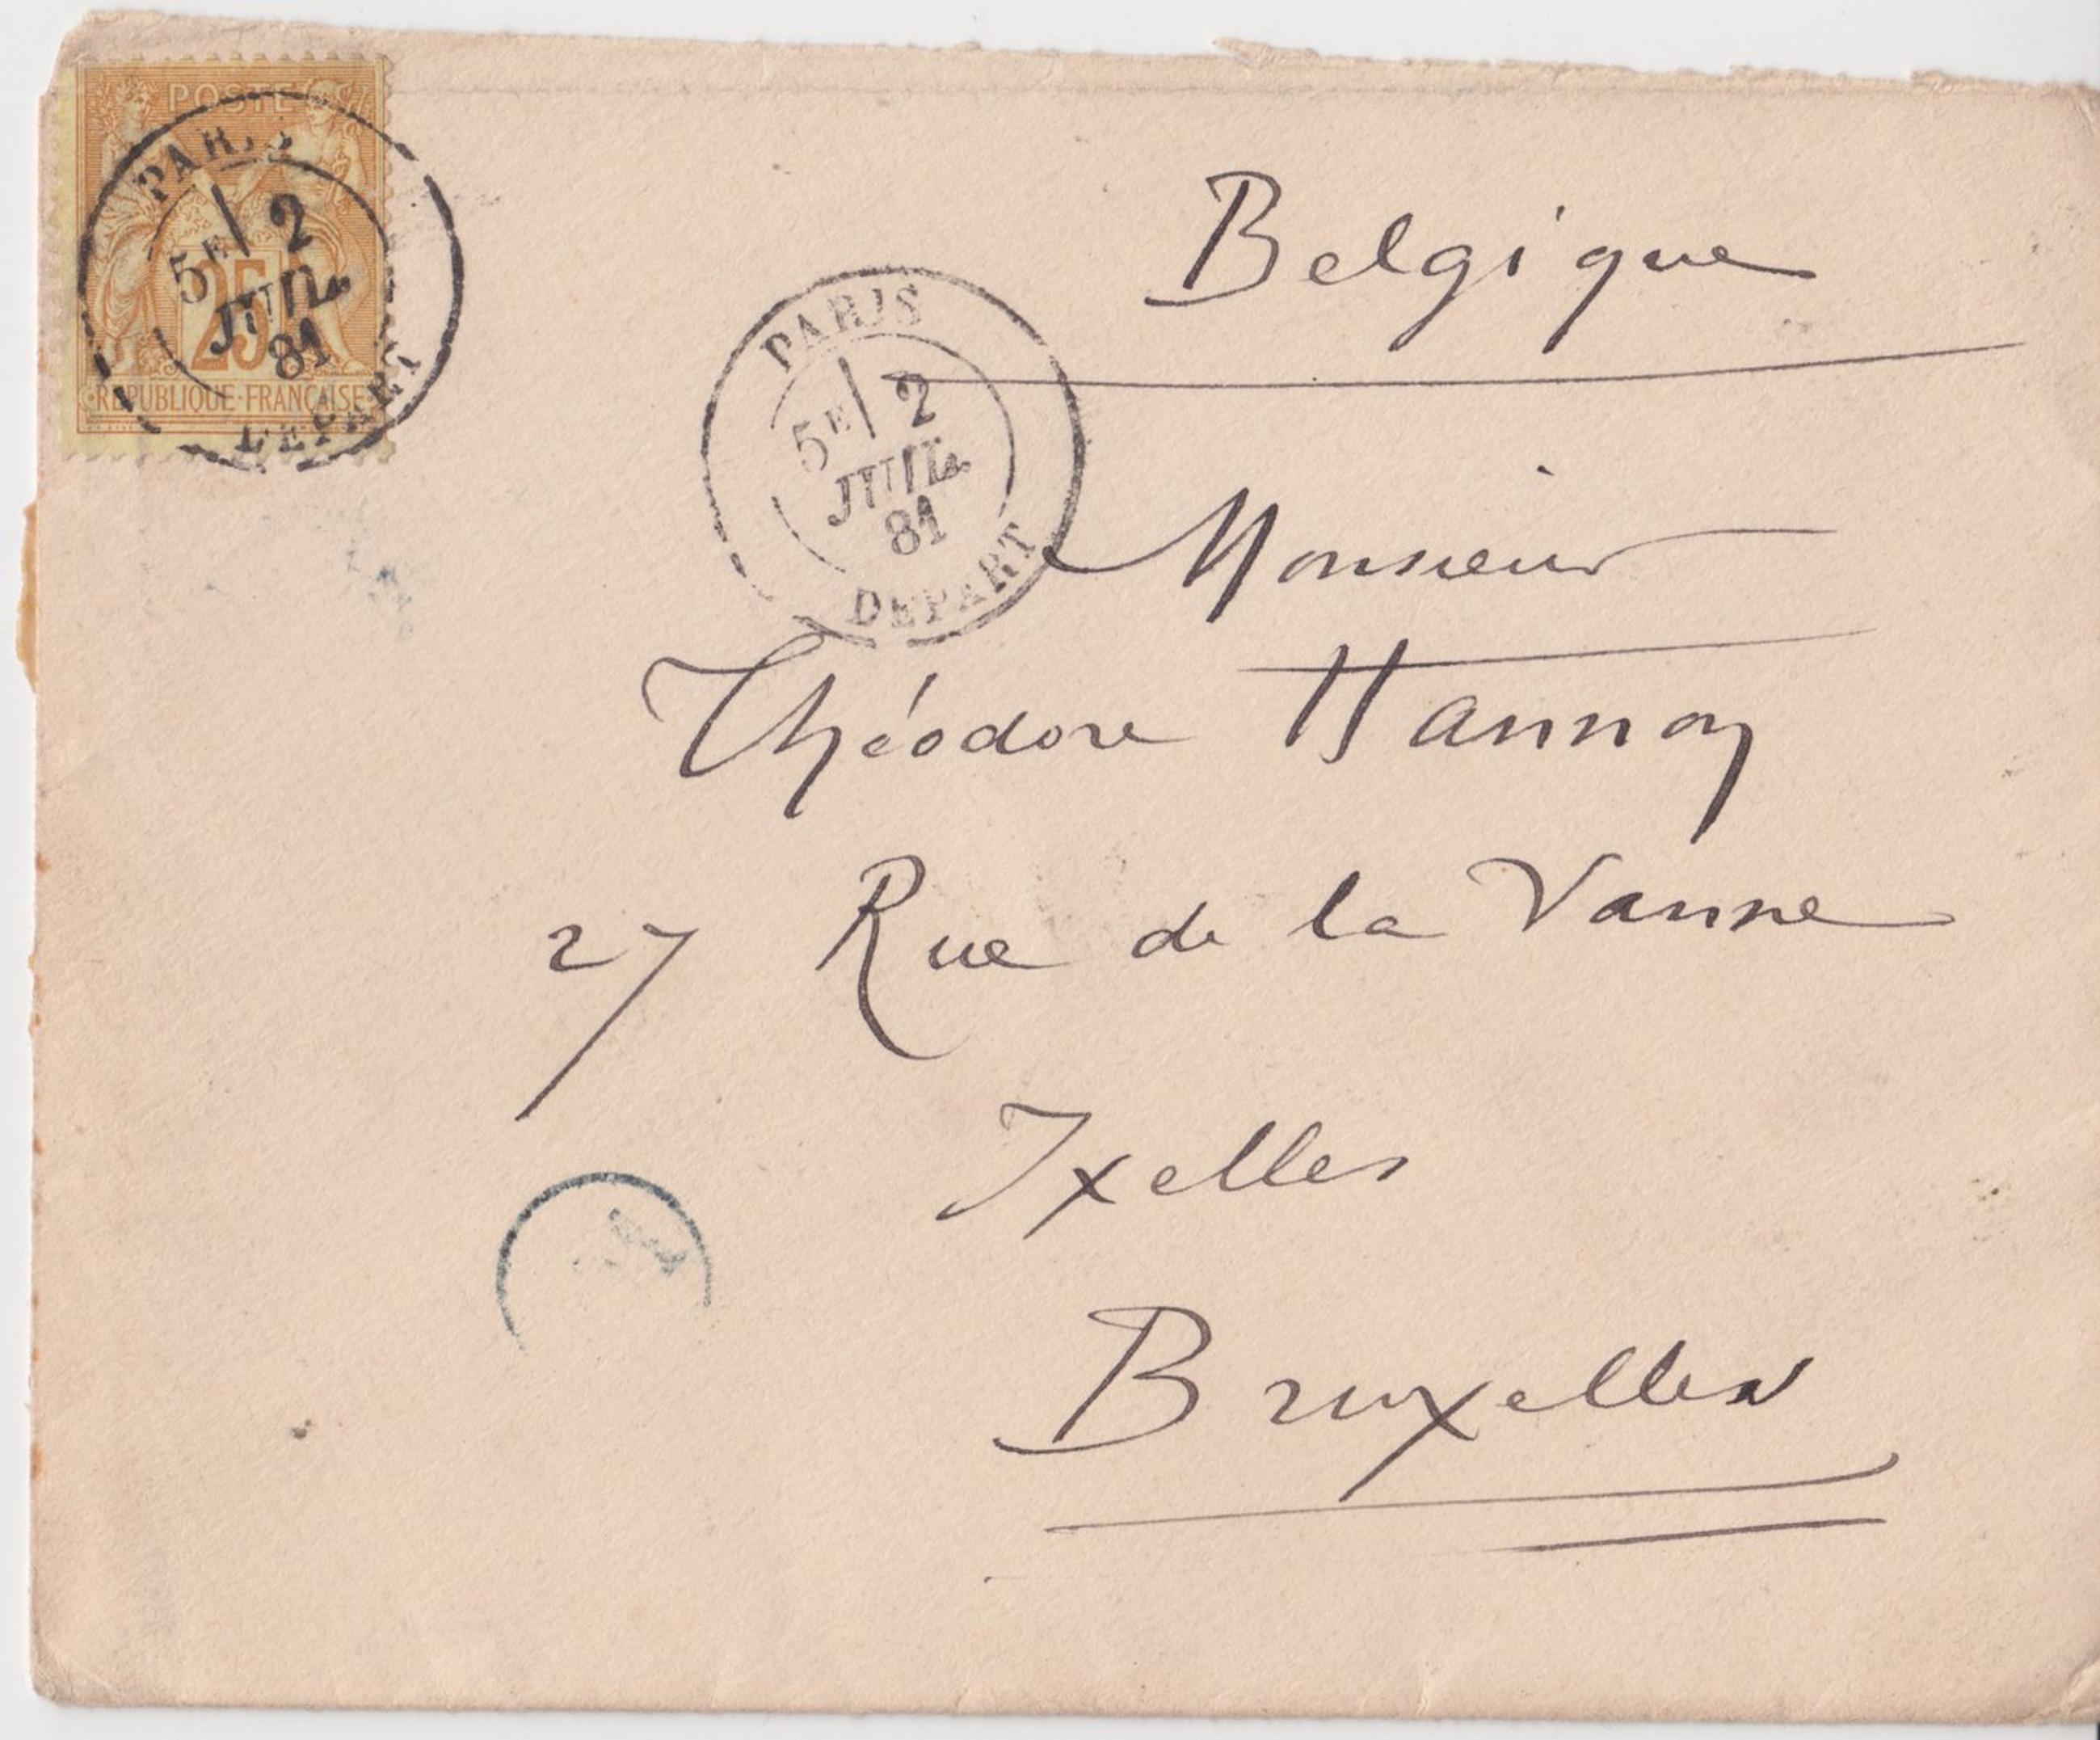 POSTE
PARIS
5E 2
JUIL.
81
DEPART
25
REPUBLIQUE FRANÇAISE
Belgique
PARIS
5E 2
JUIL.
81
DEPART
Monsieur
Théodore Hannon
27 Rue de la Vanne
Ixelles
Bruxelles